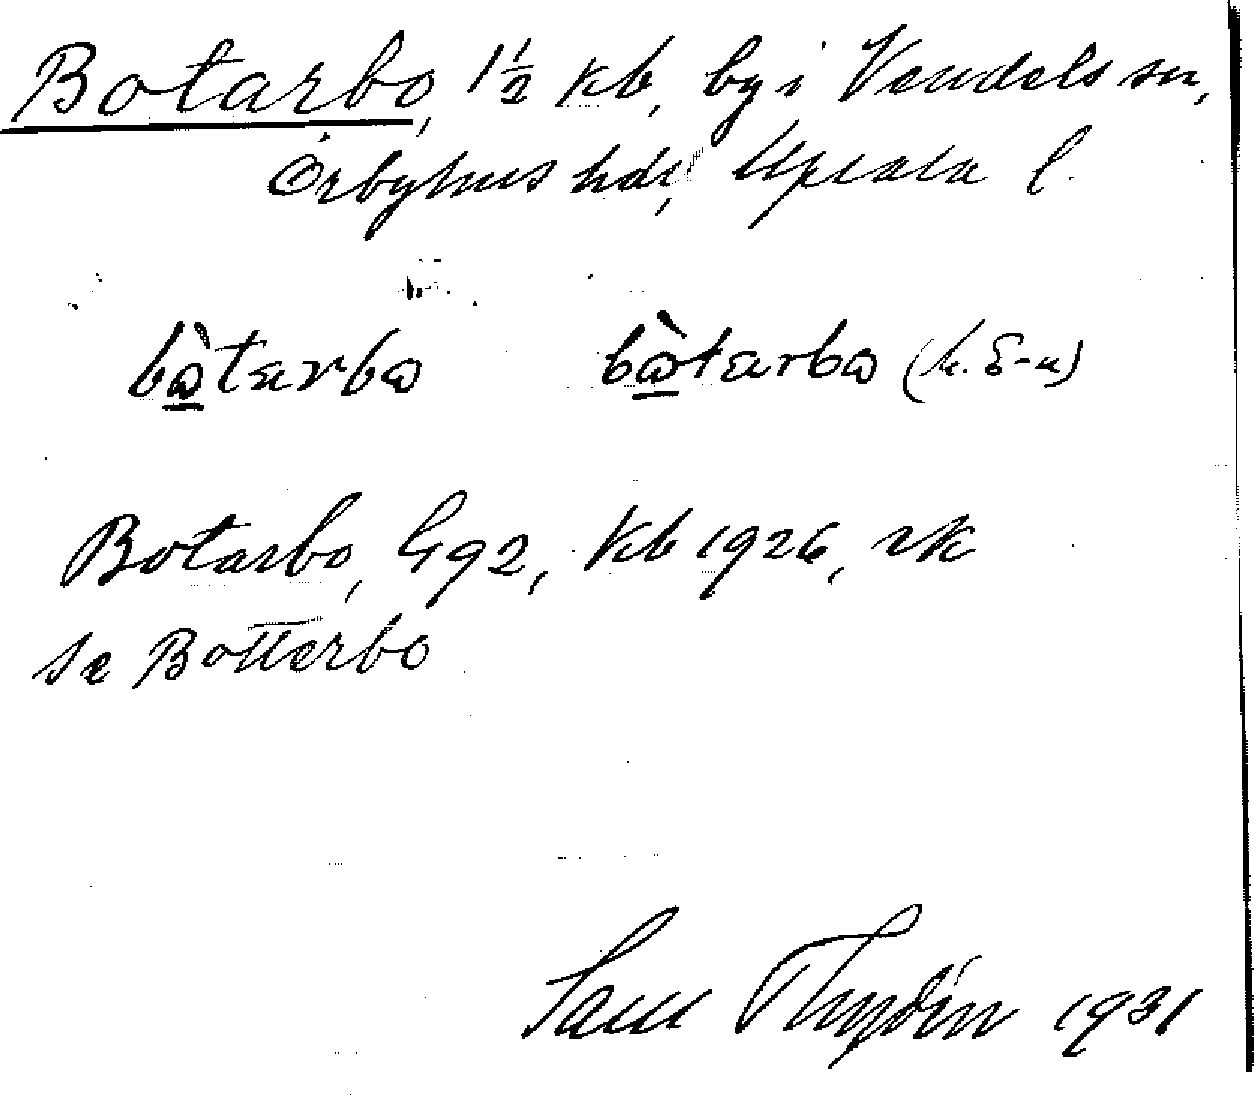 Botarbo, 1½ kb, by i Vendels sn,
Örbyhus hd, Upsala l.
bòtarbo bòtarbo
Botarbo, G92, Kb 1926, rk
se Botterbo
Sam 1931